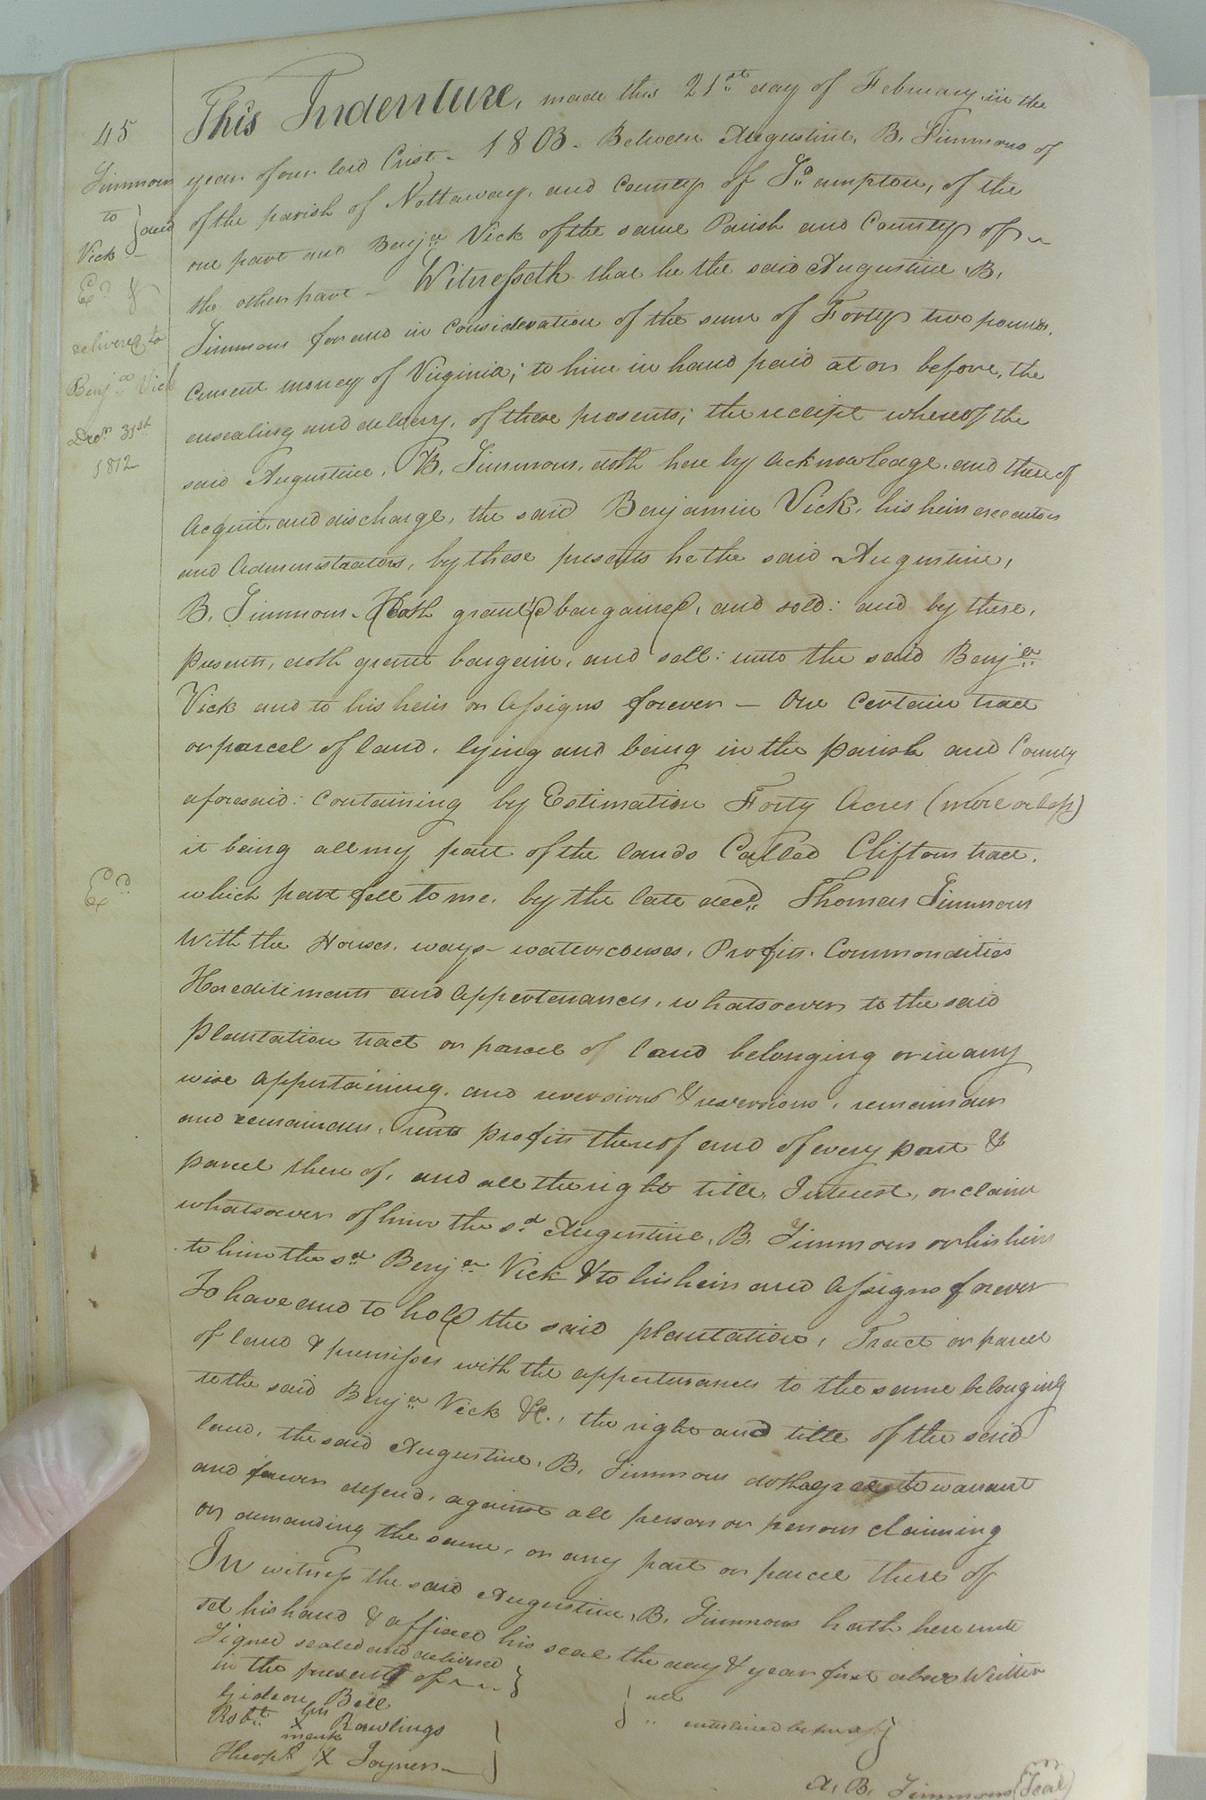 45
Simmons
to } deed
Vick
Exd
delivered to
Benja Vick
Decr 31st
1812
This Indenture, made this 21st day of February in the
year of our lord Crist - 1803 - Between Augustine, B. Simmons of
of the parish of Nottoway, and County of So ampton, of the
one part and Benja Vick of the same Parish and County of
the other part - Witnesseth that he the said Augustine B.
Simmons for and in consideration of the sum of Forty two pounds,
Current money of Virginia; to him in hand paid at or before, the
ensealing and delivery, of these presents; the receipt whereof the
said Augustine, B. Simmons, doth here by acknowledge, and there of
Acquit, and discharge, the said Benjamin Vick, his heirs executors
and Administrators, by these presents he the said Augustine,
B. Simmons - Hath granted bargained, and sold: and by these,
presents, doth grant bargain, and sell: unto the said Benja
Vick and to his heirs or Assigns forever - One Certain tract
or parcel of land, lying and being in the parish and County
aforesaid: Containing by Estimation Forty Acres (more or less)
it being all my part of the lands Called Cliftons tract,
which part fell to me, by the late decd. Thomas Simmons
With the Houses, ways - watercourses, Profits, Commondities
Hereditiments and Appertenances, whatsoever to the said
plantation tract or parcel of land belonging or in any
wise appertaining, and reversions & reversions, remainder
and remainders, rents profits thereof and of every part &
parcel there of, and all the right title, Interest, or claim
whatsoever of him the sd Augustine, B. Simmons or his heirs
to him the sd Benja Vick & to his heirs and Assigns forever
To have and to hold the said plantation, Tract or parcel
of land & premisses with the appertunances to the same belonging
to the said Benja Vick &c., the right and title of the said
land, the said Augustine, B. Simmons doth agree to warrant
and forever defend, against all person or persons claiming
or demanding the same, or any part or parcel there of
In witness the said Augustine, B. Simmons hath here unto
set his hand & affixed his seal the day & year first above Written
Signed sealed and delivered
in the presents of
Gideon Bell
Robt his X mark Rawlings
Theopl X Joyner
Exd
all
interlined before
A. B. Simmons (Seal)